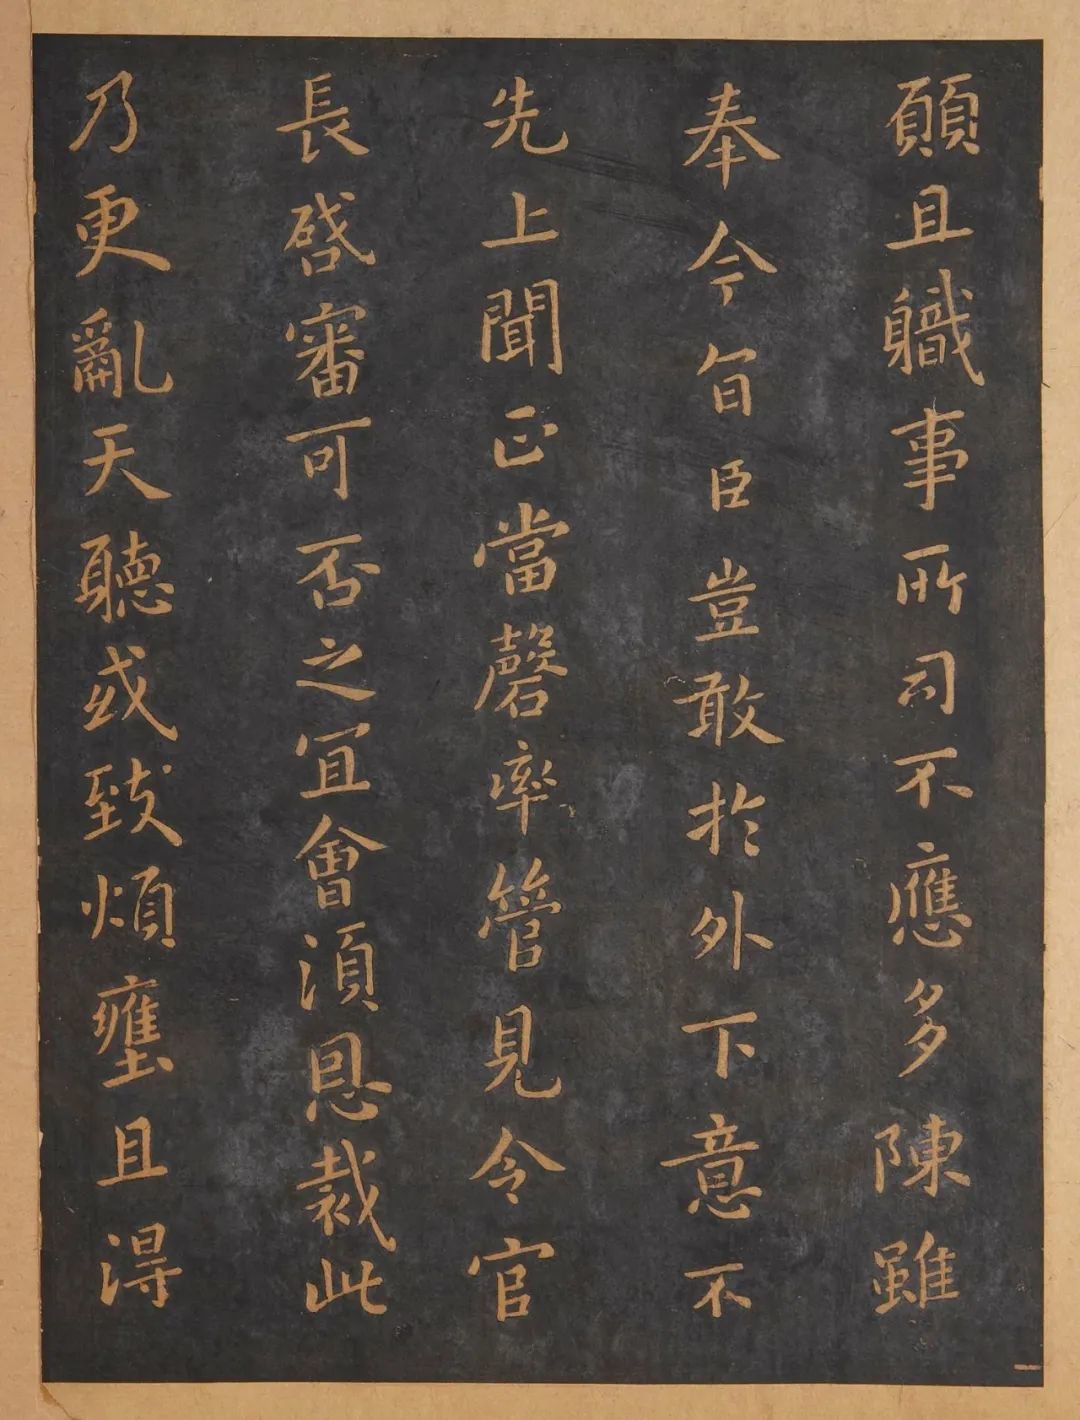 願且職事所司不應多陳雖
奉今旨臣豈敢於外下意不
先上聞正當罄率管見令官
長啓審可否之宜會須恩裁此
乃更亂天聽或致煩壅且得